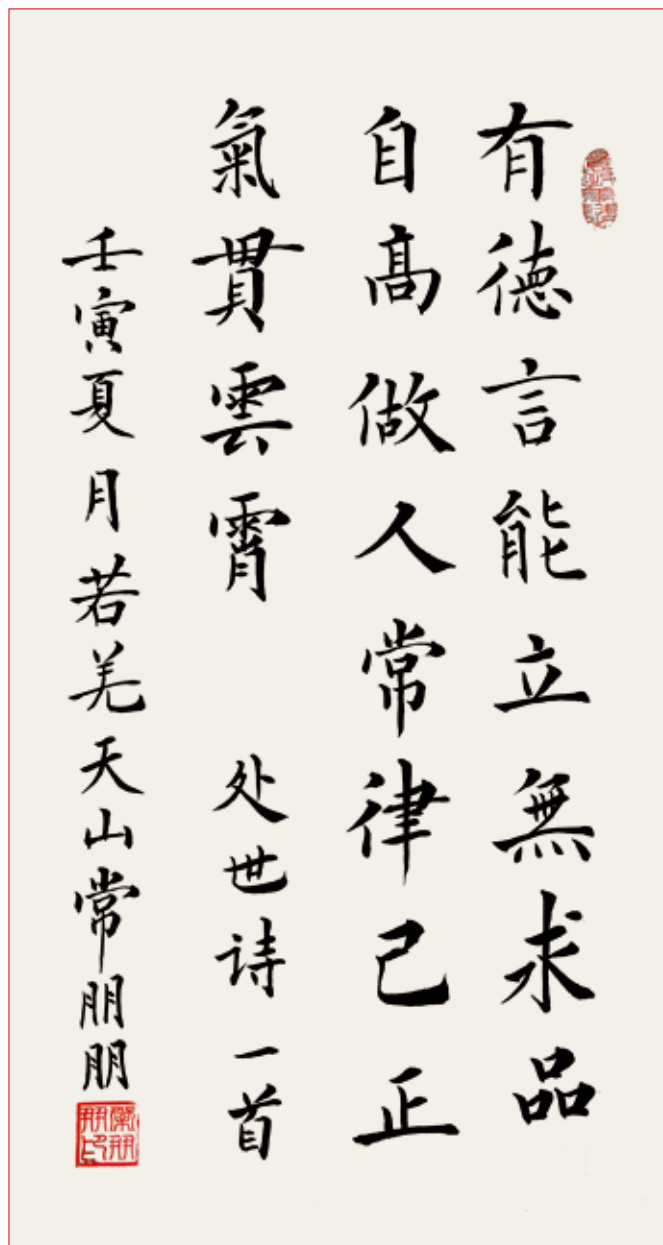 有德言能立無求品
自髙做人常律己正
氣貫雲霄 处世诗一首
壬寅夏月若羌天山常朋朋
常朋朋印